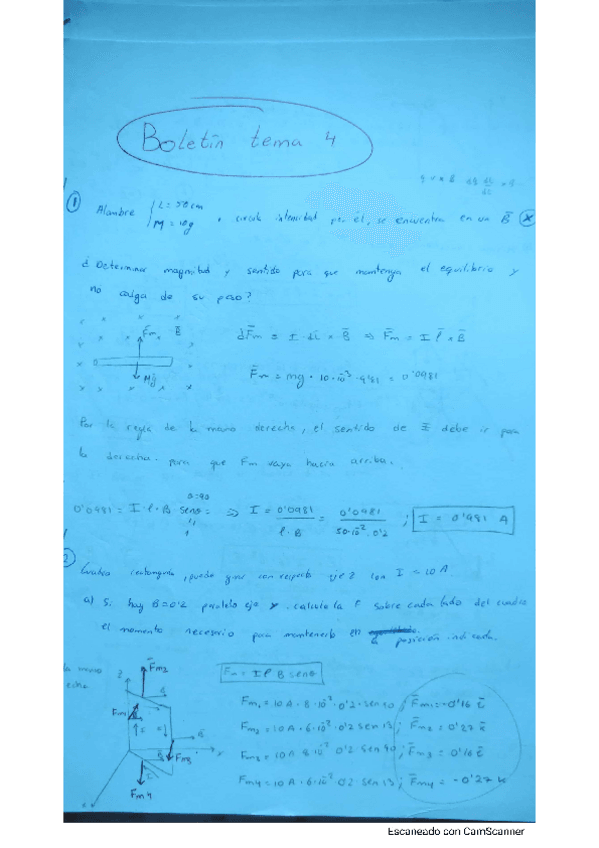 Boletín tema 4
① Alambre { L = 50 cm
M = 10g , circula intensidad por él, se encuentra en un B̄ ⊗
¿Determinar magnitud y sentido para que mantenga el equilibrio y
no caiga de su peso?
F̄m B̄
Mḡ
dF̄m = I · dl × B̄ ⇒ F̄m = I l̄ × B̄
F̄m = mg · 10·10⁻³ · 9'81 = 0'0981
Por la regla de la mano derecha, el sentido de I debe ir para
la derecha para que Fm vaya hacia arriba.
θ=90
0'0981 = I · l · B senθ = ⇒ I = 0'0981 / l · B = 0'0981 / 50·10⁻² · 0'2 ; I = 0'981 A
1
2
Cuadro rectangular, puede girar con respecto eje z con I = 10 A.
a) Si hay B=0'2 paralelo eje y. calcula la F sobre cada lado del cuadro
el momento necesario para mantenerlo en la posición indicada.
la mano
Fm = I l B senθ
F̄m2
Fm1
Fm3
Fm4
Fm1 = 10 A · 8·10⁻² · 0'2 · sen 90 ; F̄m1 = -0'16 ī
Fm2 = 10 A · 6·10⁻² · 0'2 sen 13 ; F̄m2 = 0'27 k̄
Fm3 = 10 A 8·10⁻² 0'2 sen 90 ; F̄m3 = 0'16 ī
Fm4 = 10 A · 6·10⁻² 0'2 sen 13 ; F̄m4 = -0'27 k
Escaneado con CamScanner